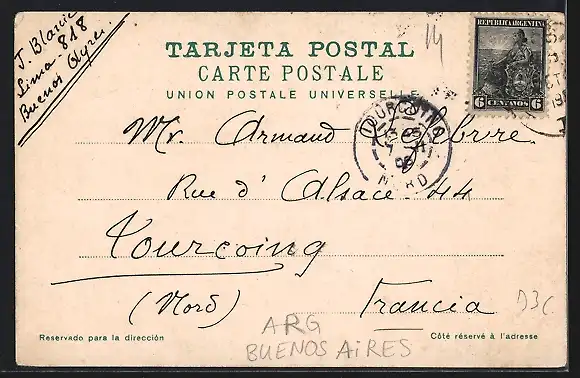 J. Blanc
Lima - 818
Buenos Ayres
TARJETA POSTAL
CARTE POSTALE
UNION POSTALE UNIVERSELLE
REPUBLICA ARGENTINA
6 CENTAVOS 6
TOURCOING
NORD
Mr. Armand Lefebvre
Rue d' Alsace 44
Tourcoing
(Nord) Francia
D3C
ARG
BUENOS AIRES
Reservado para la dirección
Côté réservé à l'adresse